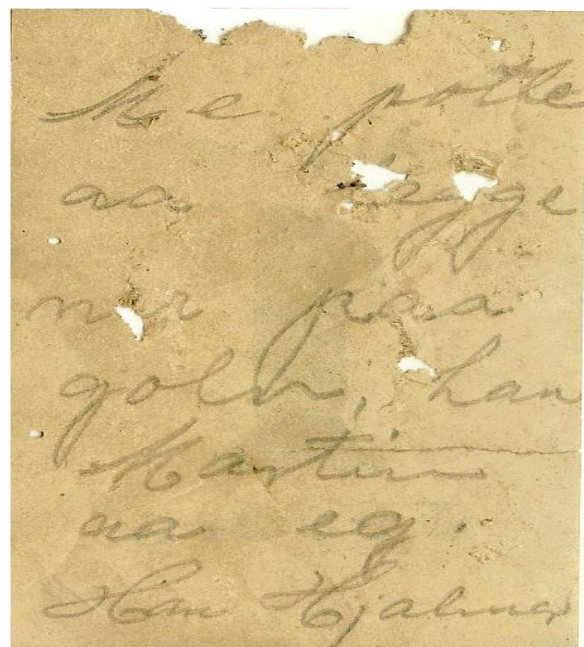 Me potle
aa legge
ner paa
goln, han
Martin
aa eg.
Han Hjalmar